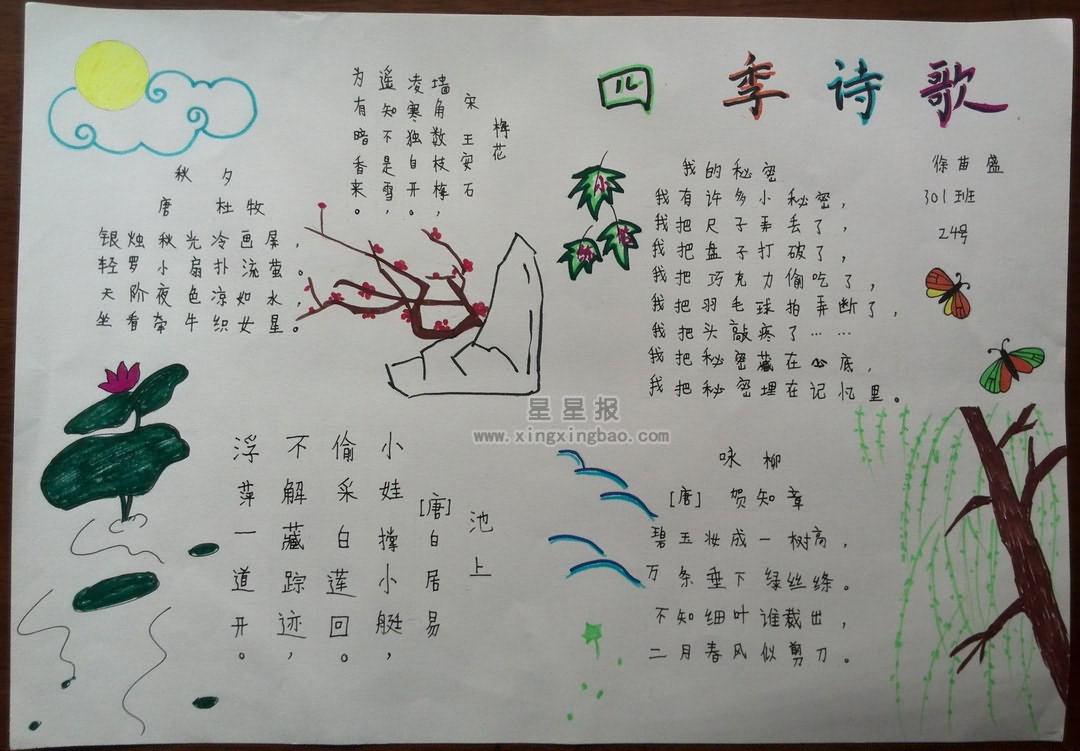 四季诗歌
徐苗盛
301班
24号
我的秘密
我有许多小秘密，
我把尺子弄丢了，
我把盘子打破了，
我把巧克力偷吃了，
我把羽毛球拍弄断了，
我把头敲疼了……
我把秘密藏在心底，
我把秘密埋在记忆里。
梅花
宋 王安石
墙角数枝梅，
凌寒独自开。
遥知不是雪，
为有暗香来。
秋夕
唐 杜牧
银烛秋光冷画屏，
轻罗小扇扑流萤。
天阶夜色凉如水，
坐看牵牛织女星。
星星报
www.xingxingbao.com
池上
[唐]白居易
小娃撑小艇，
偷采白莲回。
不解藏踪迹，
浮萍一道开。
咏柳
[唐] 贺知章
碧玉妆成一树高，
万条垂下绿丝绦。
不知细叶谁裁出，
二月春风似剪刀。